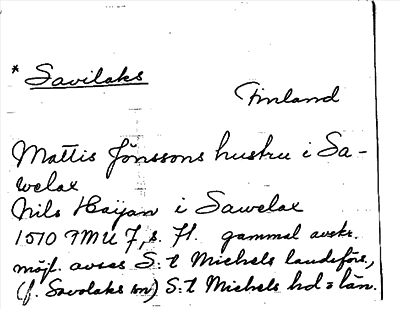 * Savilaks
Finland
Mattis Jönssons hustru i Sa-
welax
Nils Hayan i Sawelax
1510 9MU 7, s. 71. gammal avskr.
möjl. avses S:t Michels landsförs.,
(f. Savolaks sn) S:t Michels hd = län.